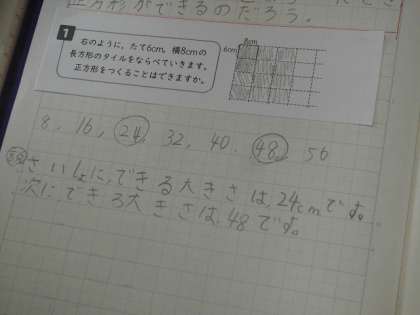 正方形ができるのだろう。
1
右のように、たて6cm、横8cmの
長方形のタイルをならべていきます。
正方形をつくることはできますか。
8cm
6cm
8, 16, 24, 32, 40, 48, 56
さいしょに、できる大きさは、24cmです。
次に、できる大きさは、48です。